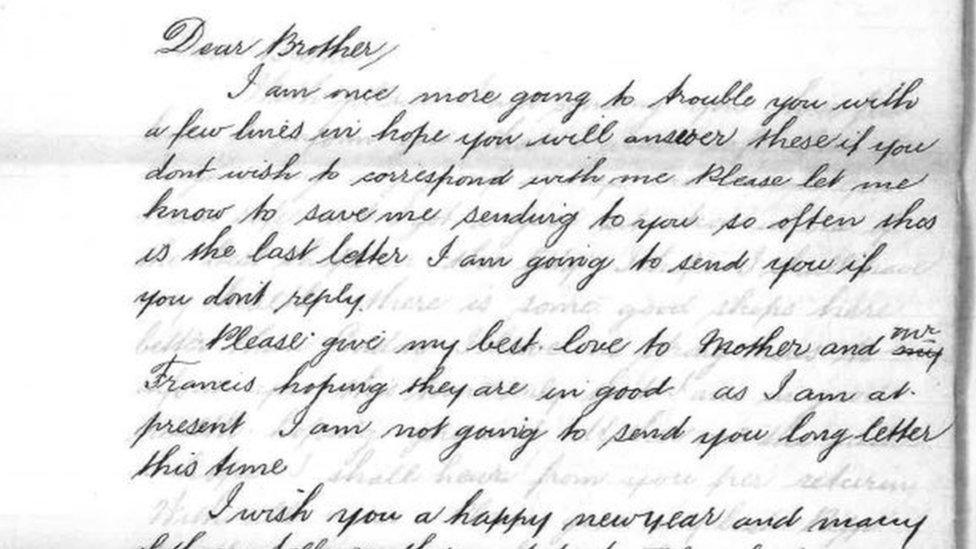 Dear Brother,
I am once more going to trouble you with
a few lines in hope you will answer these if you
dont wish to correspond with me Please let me
know to save me sending to you so often this
is the last letter I am going to send you if
you dont reply.
Please give my best love to Mother and our
Francis hoping they are in good as I am at
present I am not going to send you long letter
this time
I wish you a happy newyear and many